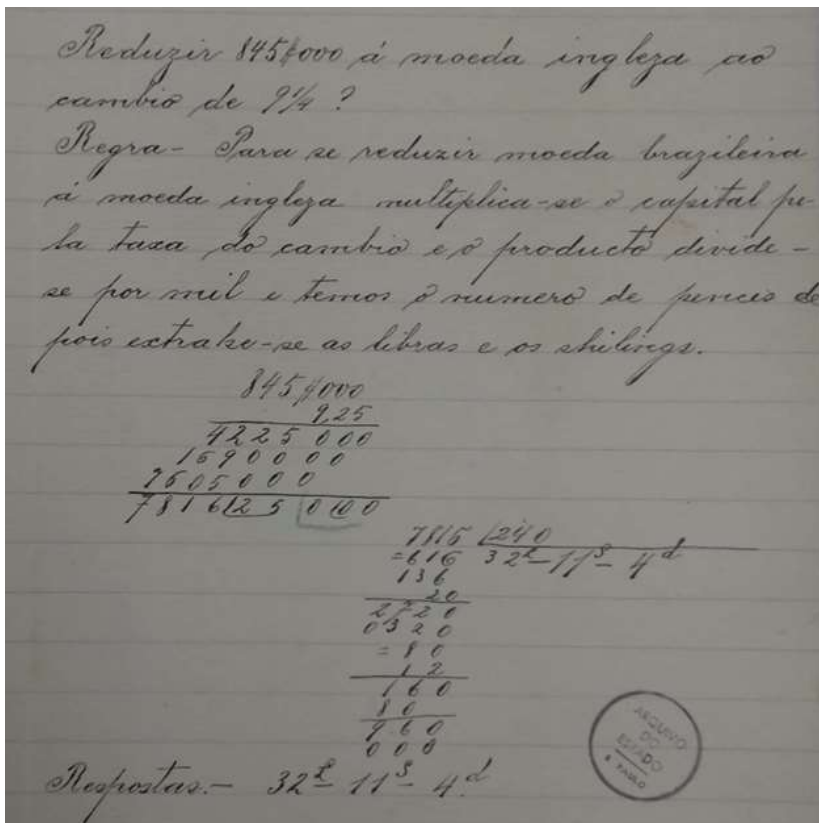 Reduzir 845$000 á moeda ingleza ao
cambio de 9 1/4 ?
Regra - Para se reduzir moeda brazileira
á moeda ingleza multiplica-se o capital pe-
la taxa do cambio e o producto divide-
se por mil e temos o numero de pences de
pois extrahe-se as libras e os shilings.
845$000
9,25
4225 000
1690000
7605000
7816125 000
7816 240
=616 32£-11s-4d
136
20
2720
0320
=80
12
160
80
960
000
Respostas.- 32£ 11s- 4d.
ARQUIVO
DO
ESTADO
S. PAULO